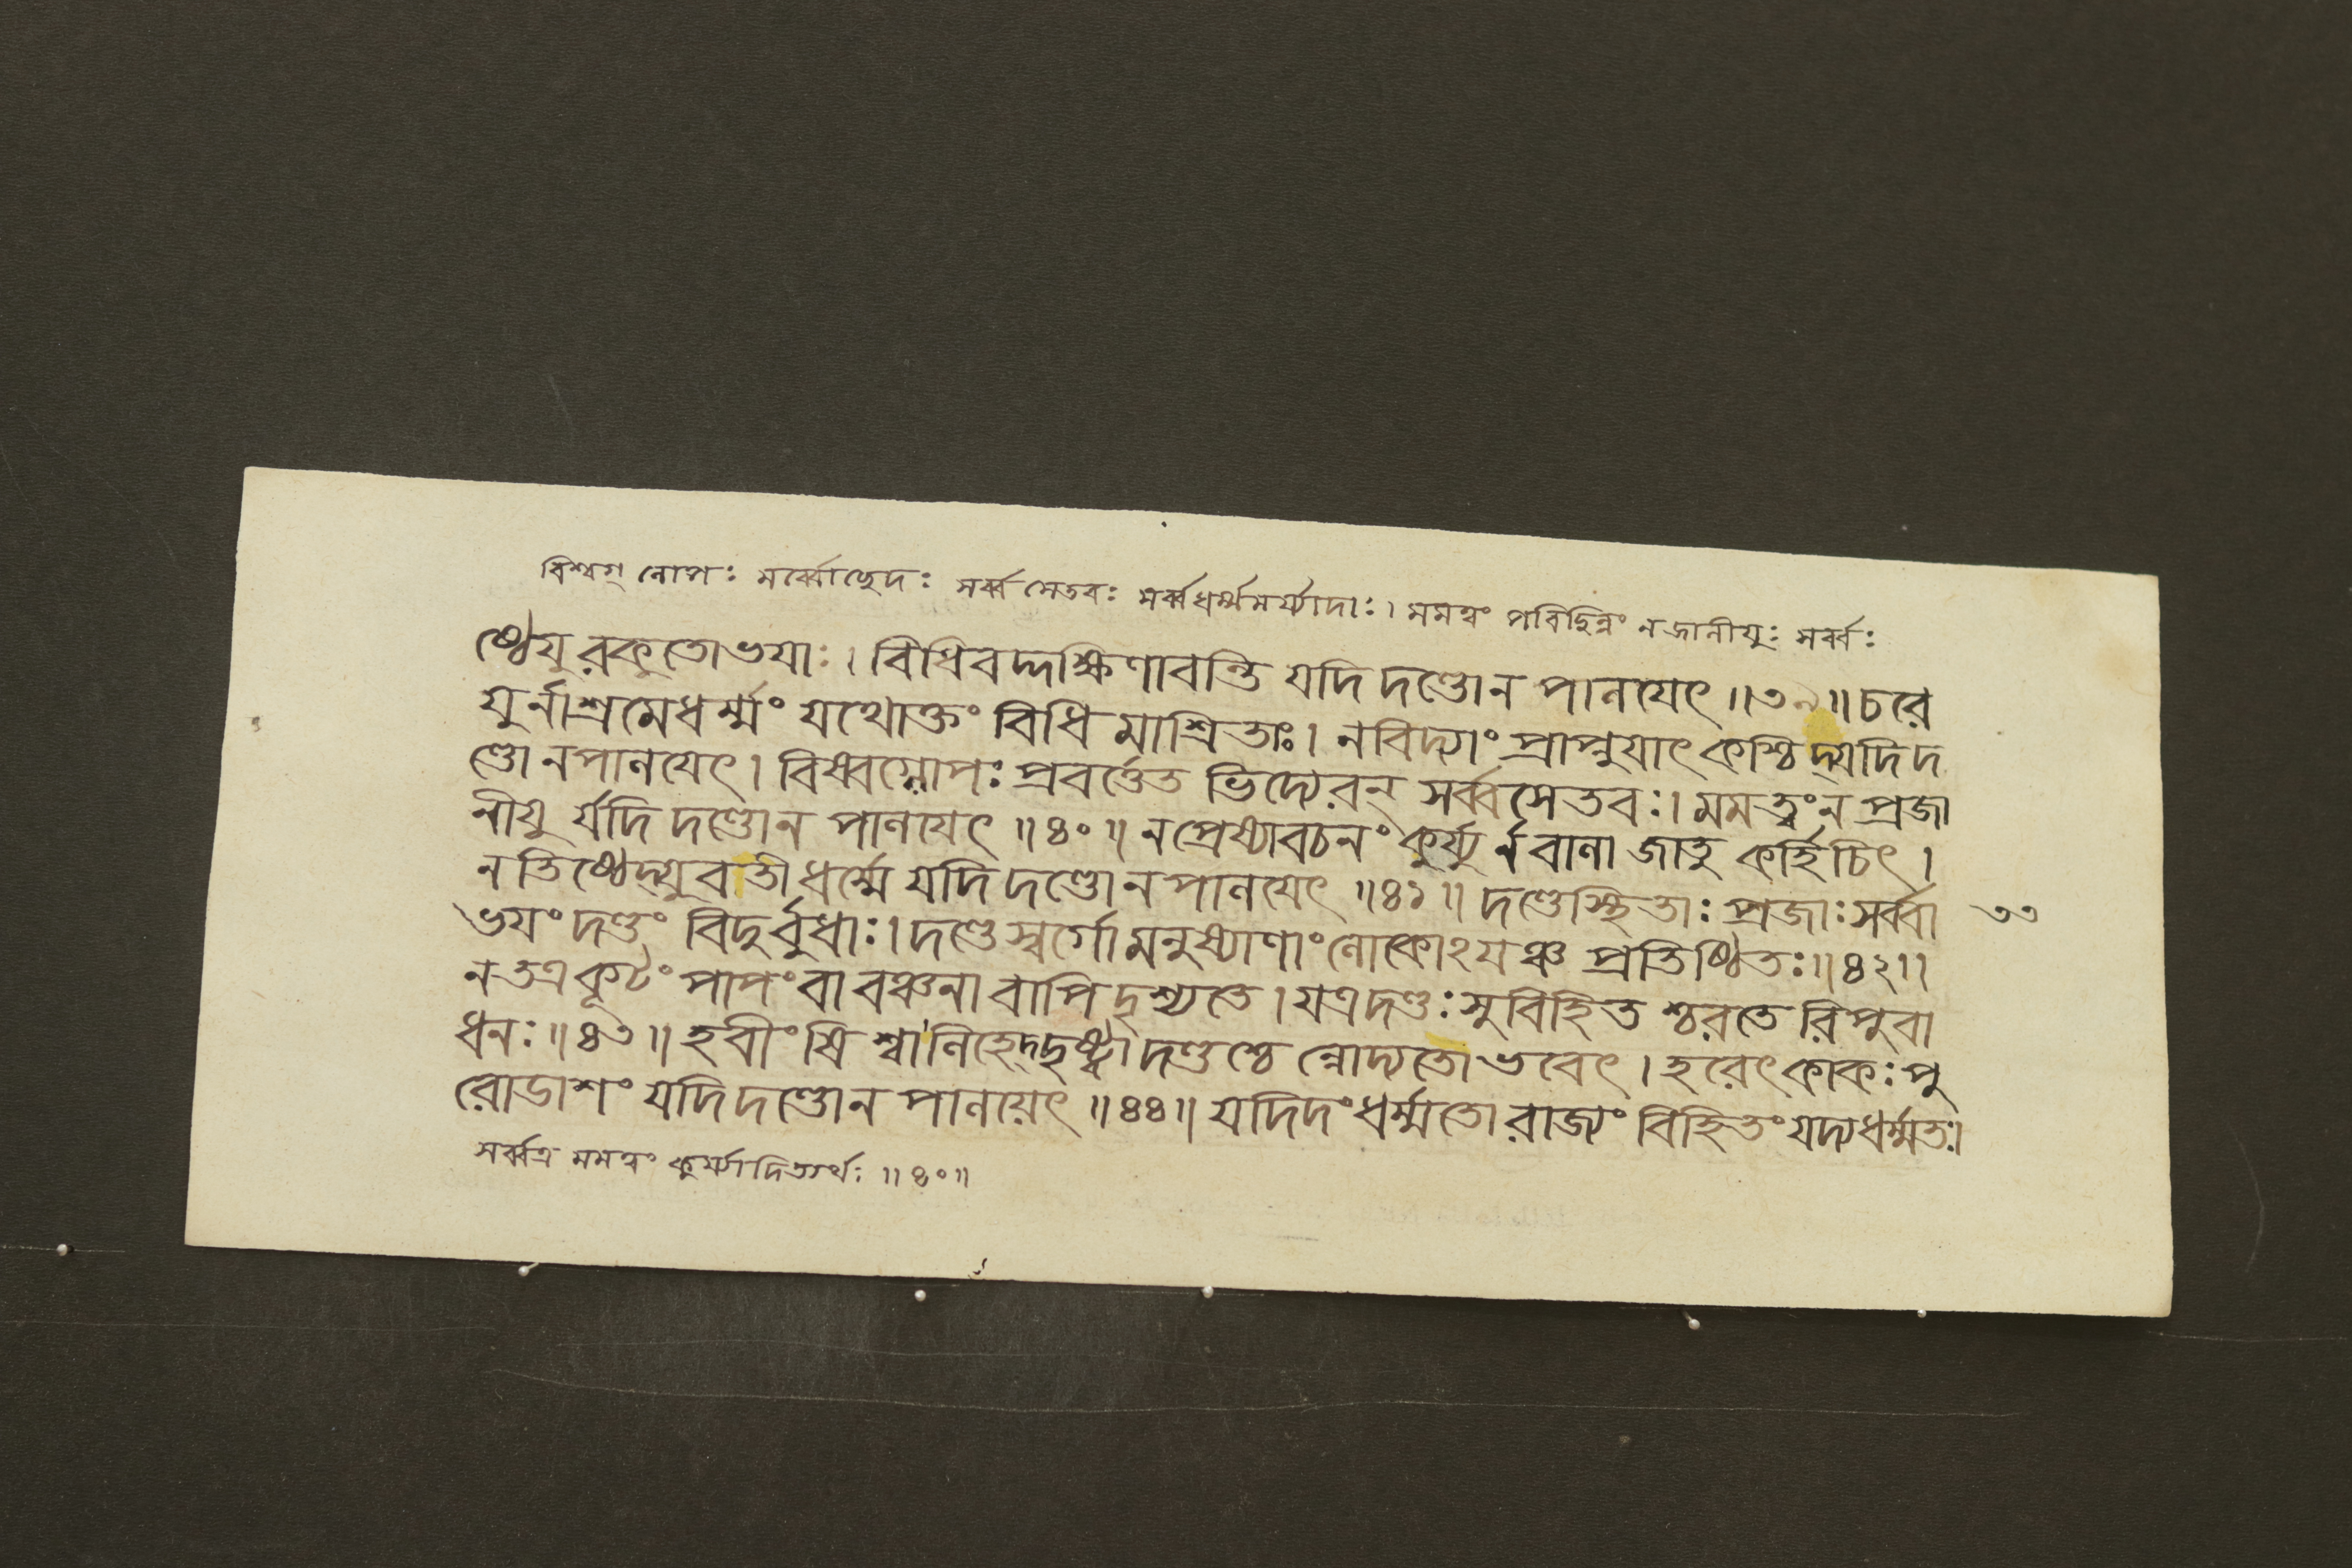 বিশ্বগ্ লোপঃ সর্ব্বোছেদঃ সর্ব্ব সেতবঃ সর্ব্বধর্ম্মমর্য্যাদাঃ। মমত্বং পরিচ্ছিন্নং ন জানীযুঃ সর্ব্বঃ
ষ্ঠেযুরকুতোভযাঃ। বিধিবদ্দক্ষিণাবন্তি যদি দণ্ডোন পালযেৎ॥৩৯॥ চরে
যুর্নাশ্রমেধর্ম্মং যথোক্তং বিধি মাশ্রিতাঃ। নবিদ্যাং প্রাপ্নুযাৎ কশ্চিদ্যদি দ
ণ্ডো নপালযেৎ। বিষ্বগ্লোপঃ প্রবর্ত্তেত ভিদ্যেরন্ সর্ব্বসেতবঃ। মমত্বং ন প্রজা
নীযু র্যদি দণ্ডোন পালযেৎ॥৪০॥ নপ্রেষ্যাবচনং কুর্য্যু র্নবালা জাতু কর্হিচিৎ।
নতিষ্ঠেদ্যুবতী ধর্ম্মে যদি দণ্ডো নপালযেৎ॥৪১॥ দণ্ডেস্থিতাঃ প্রজাঃ সর্ব্বা
ভযং দণ্ডং বিদুর্বুধাঃ। দণ্ডে স্বর্গো মনুষ্যাণাং লোকোঽযঞ্চ প্রতিষ্ঠিতঃ॥৪২॥
৩৩
নতত্র কূটং পাপং বা বঞ্চনা বাপি দৃশ্যতে। যত্র দণ্ডঃ সুবিহিত শ্চরতে রিপুবা
ধনঃ॥৪৩॥ হবীংষি শ্বা লিহেদ্দৃষ্ট্বা দণ্ডশ্চে ন্নোদ্যতো ভবেৎ। হরেৎ কাকঃ পু
রোডাশং যদি দণ্ডোন পালয়েৎ॥৪৪॥ যদিদং ধর্ম্মতো রাজ্যং বিহিতং যদ্যধর্ম্মতঃ।
সর্ব্বত্র মমত্বং কুর্য্যাদিত্যর্থঃ॥৪০॥